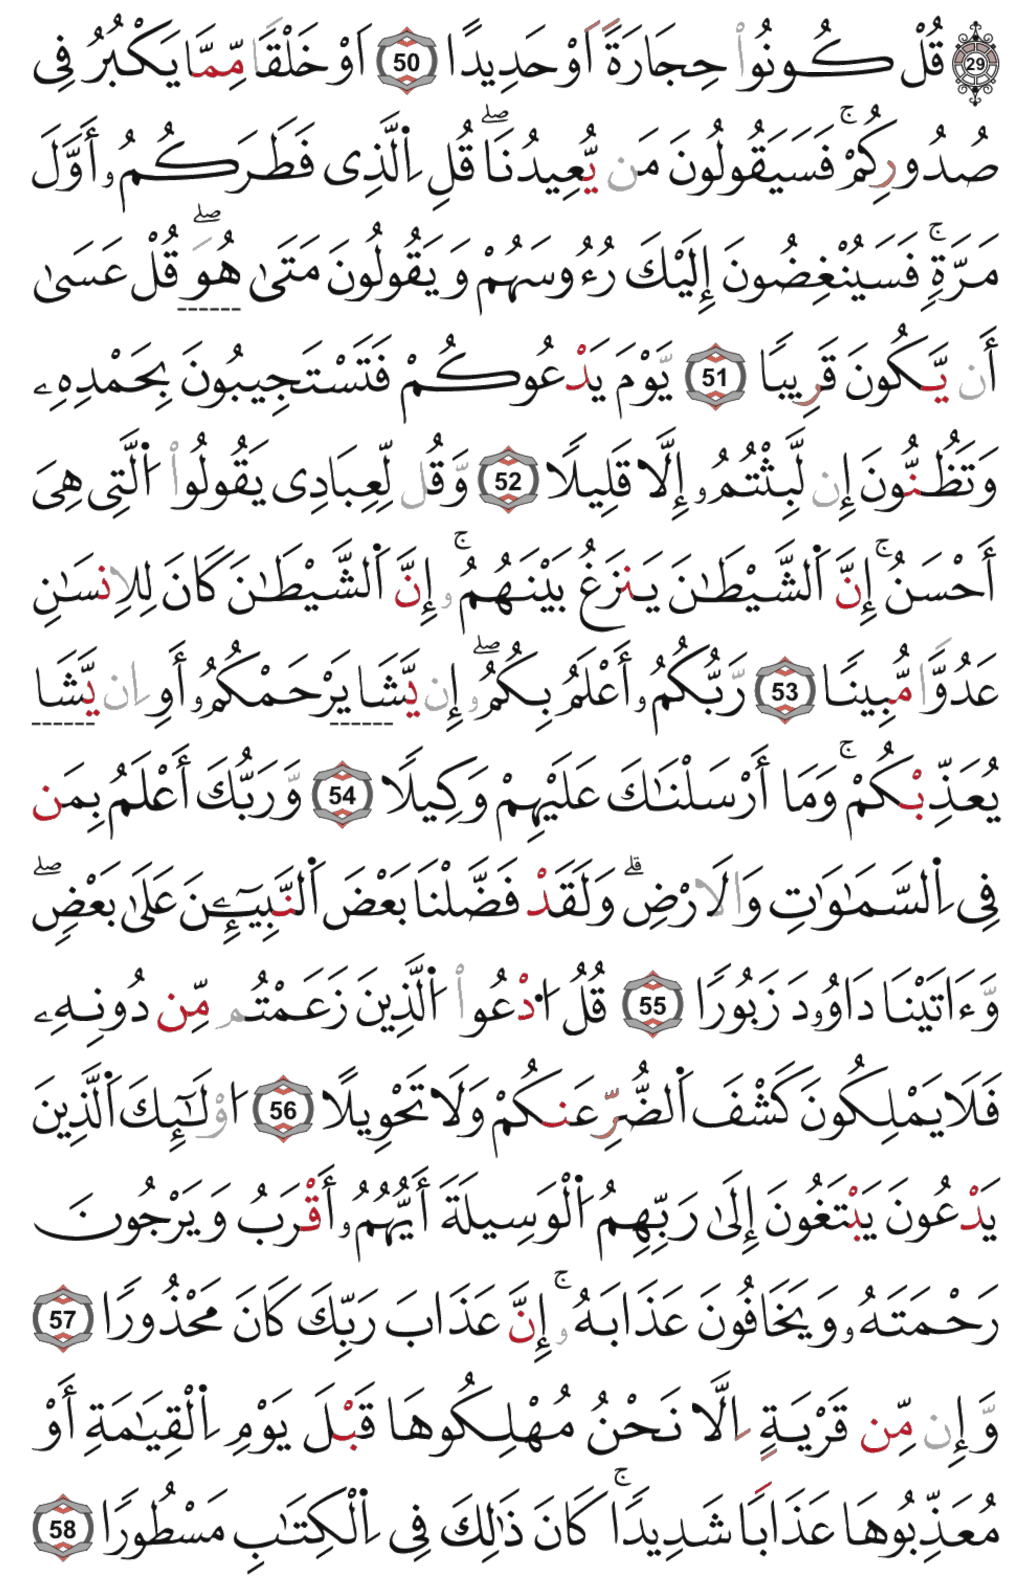 29 قُلْ كُونُواْ حِجَارَةً اَوْ حَدِيدًا 50 اَوْ خَلْقًا مِّمَّا يَكْبُرُ فِى
صُدُورِكُمْ ۚ فَسَيَقُولُونَ مَن يُّعِيدُنَا ۖ قُلِ اِ۬لَّذِى فَطَرَكُمُۥ أَوَّلَ
مَرَّةٍ ۚ فَسَيُنْغِضُونَ إِلَيْكَ رُءُوسَهُمْ وَيَقُولُونَ مَتَىٰ هُوَ ۖ قُلْ عَسَىٰ
أَن يَّكُونَ قَرِيبًا 51 يَّوْمَ يَدْعُوكُمْ فَتَسْتَجِيبُونَ بِحَمْدِهِۦ
وَتَظُنُّونَ إِن لَّبِثْتُمُۥ إِلَّا قَلِيلًا 52 وَّقُل لِّعِبَادِى يَقُولُواْ اُ۬لَّتِى هِىَ
أَحْسَنُ ۚ إِنَّ اَ۬لشَّيْطَـٰنَ يَنزَغُ بَيْنَهُمُۥ ۚ إِنَّ اَ۬لشَّيْطَـٰنَ كَانَ لِلِانسَـٰنِ
عَدُوًّا مُّبِينًا 53 رَّبُّكُمُۥ أَعْلَمُ بِكُمُۥ ۖ إِن يَّشَا يَرْحَمْكُمُۥ أَوِ اِن يَّشَا
يُعَذِّبْكُمْ ۚ وَمَا أَرْسَلْنَـٰكَ عَلَيْهِمْ وَكِيلًا 54 وَّرَبُّكَ أَعْلَمُ بِمَن
فِى اِ۬لسَّمَـٰوَٰتِ وَالَارْضِ ۗ وَلَقَدْ فَضَّلْنَا بَعْضَ اَ۬لنَّبِيٓـِٕينَ عَلَىٰ بَعْضٍ ۖ
وَّءَاتَيْنَا دَاوُۥدَ زَبُورًا 55 قُلُ اُ۟دْعُواْ اُ۬لَّذِينَ زَعَمْتُم مِّن دُونِهِۦ
فَلَا يَمْلِكُونَ كَشْفَ اَ۬لضُّرِّ عَنكُمْ وَلَا تَحْوِيلًا 56 اُوْلَـٰٓئِكَ اَ۬لَّذِينَ
يَدْعُونَ يَبْتَغُونَ إِلَىٰ رَبِّهِمُ اُ۬لْوَسِيلَةَ أَيُّهُمُۥ أَقْرَبُ وَيَرْجُونَ
رَحْمَتَهُۥ وَيَخَافُونَ عَذَابَهُۥ ۚ إِنَّ عَذَابَ رَبِّكَ كَانَ مَحْذُورًا 57
وَّإِن مِّن قَرْيَةٍ اِلَّا نَحْنُ مُهْلِكُوهَا قَبْلَ يَوْمِ اِ۬لْقِيَـٰمَةِ أَوْ
مُعَذِّبُوهَا عَذَابًا شَدِيدًا ۚ كَانَ ذَٰلِكَ فِى اِ۬لْكِتَـٰبِ مَسْطُورًا 58